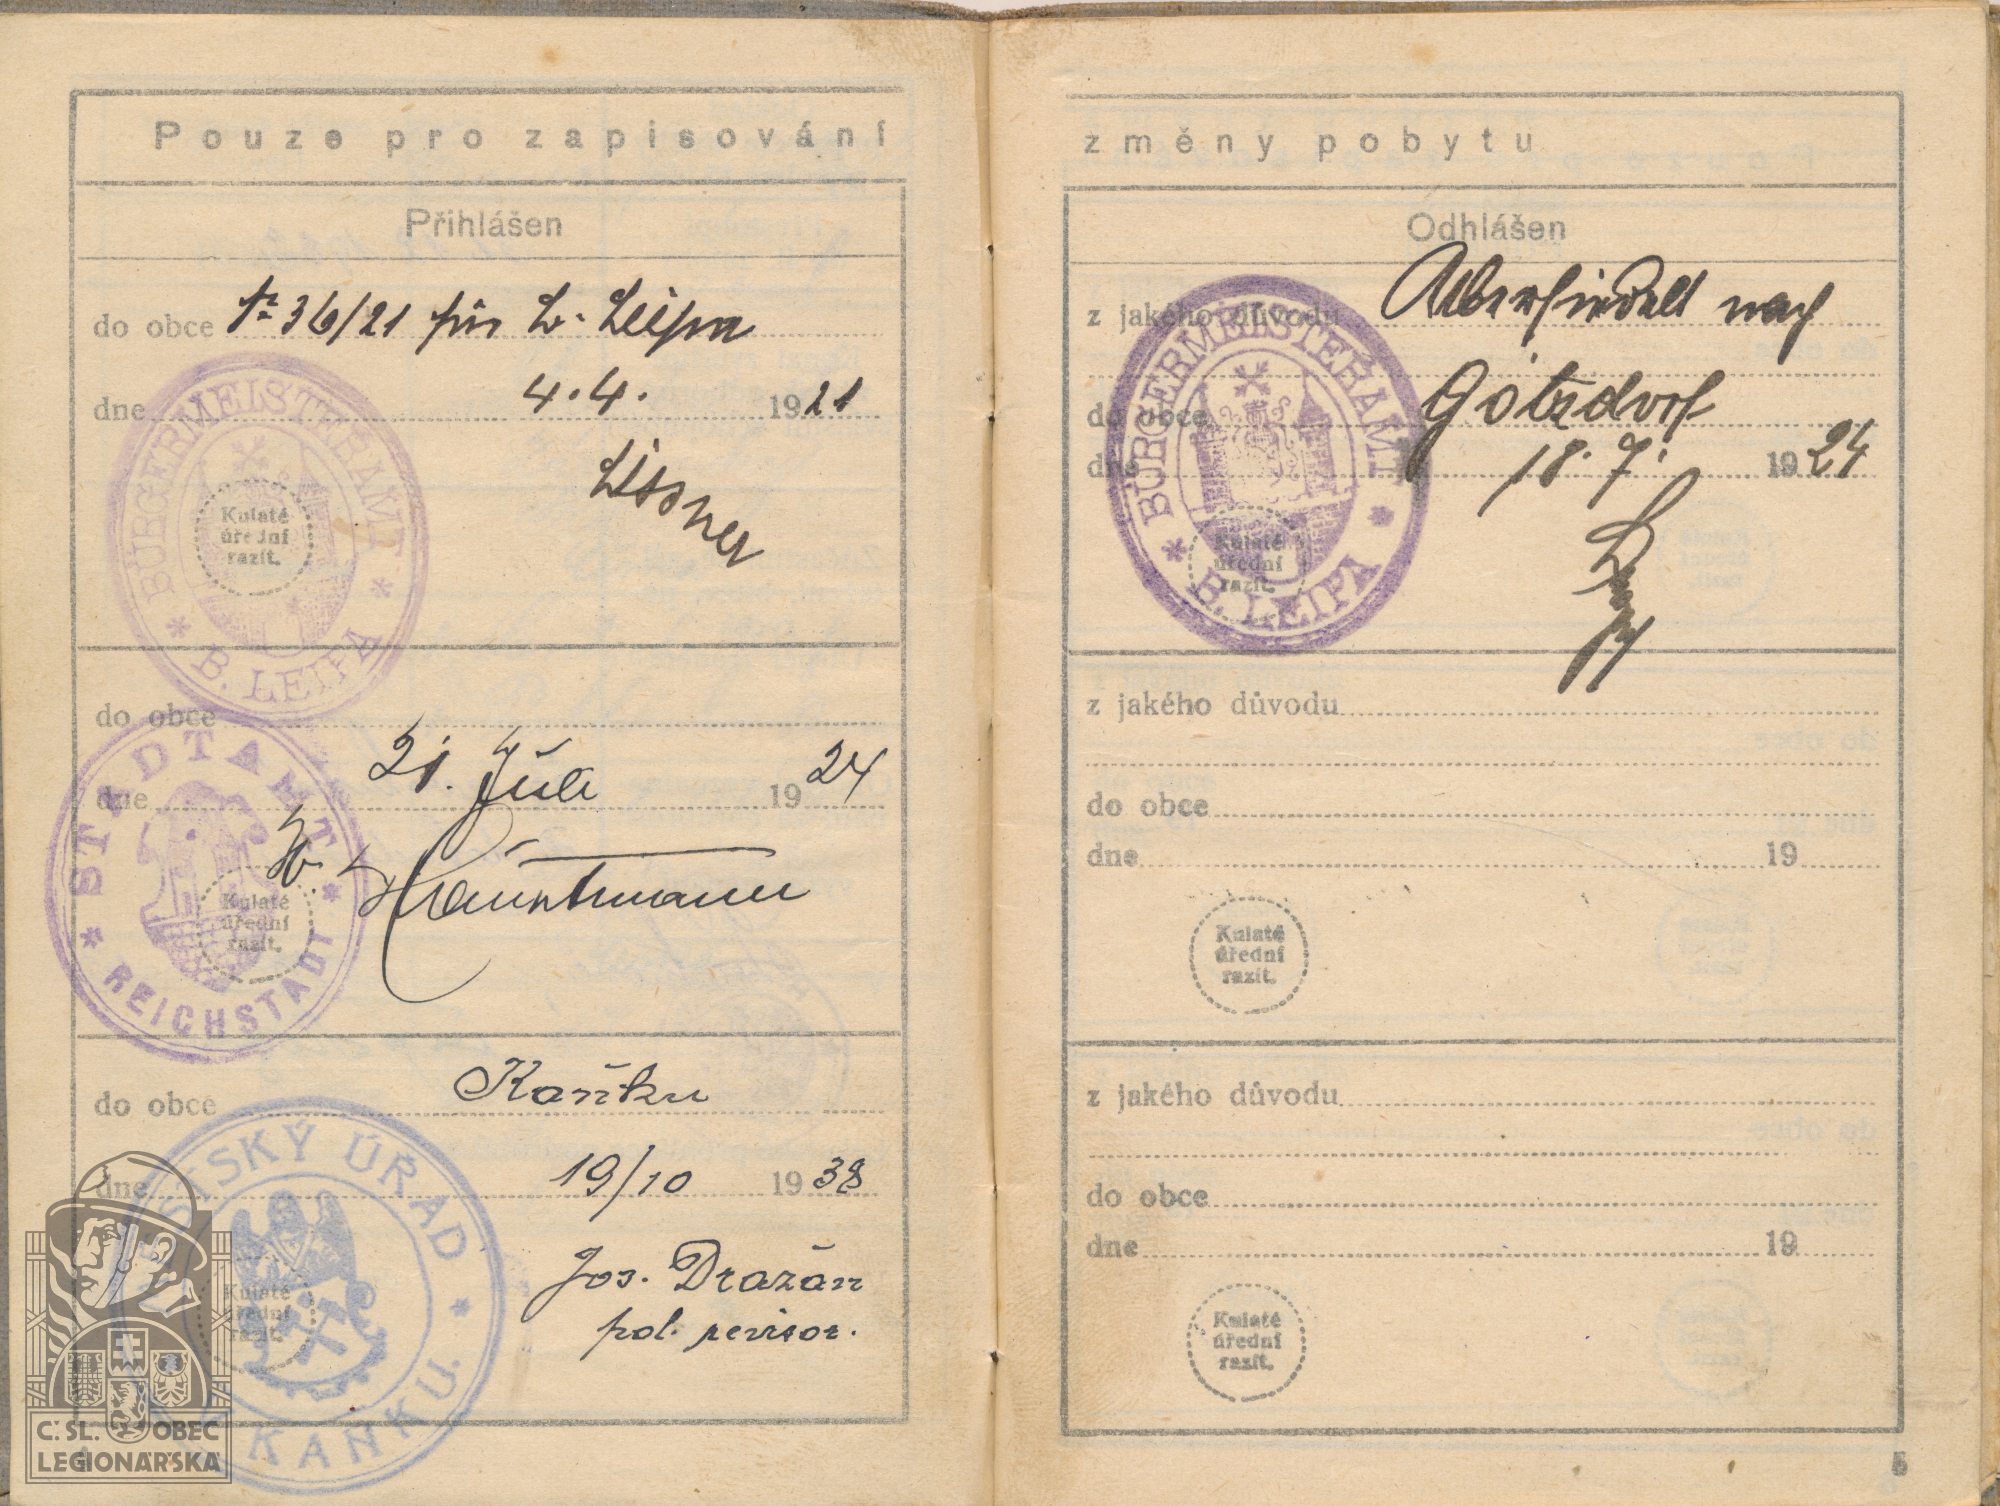 Pouze pro zapisování
Přihlášen
do obce № 36/21 für B. Leipa
dne 4.4. 1921
Lissner
BÜRGERMEISTERAMT
* B. LEIPA *
Kulaté
úřední
razít.
do obce
dne 21. Juli 1924
STADTAMT
* REICHSTADT *
Kulaté
úřední
razít.
do obce Kaňku
dne 19/10 1938
Jos. Dražan
pol. revisor.
MĚSTSKÝ ÚŘAD
KAŇKU.
Kulaté
úřední
razít.
Č.SL. OBEC
LEGIONÁŘSKÁ
změny pobytu
Odhlášen
z jakého důvodu Übersiedelt nach
do obce Götzdorf
dne 18.7. 1924
BÜRGERMEISTERAMT
* B. LEIPA *
Kulaté
úřední
razít.
z jakého důvodu
do obce
dne 19
Kulaté
úřední
razít.
z jakého důvodu
do obce
dne 19
Kulaté
úřední
razít.
5